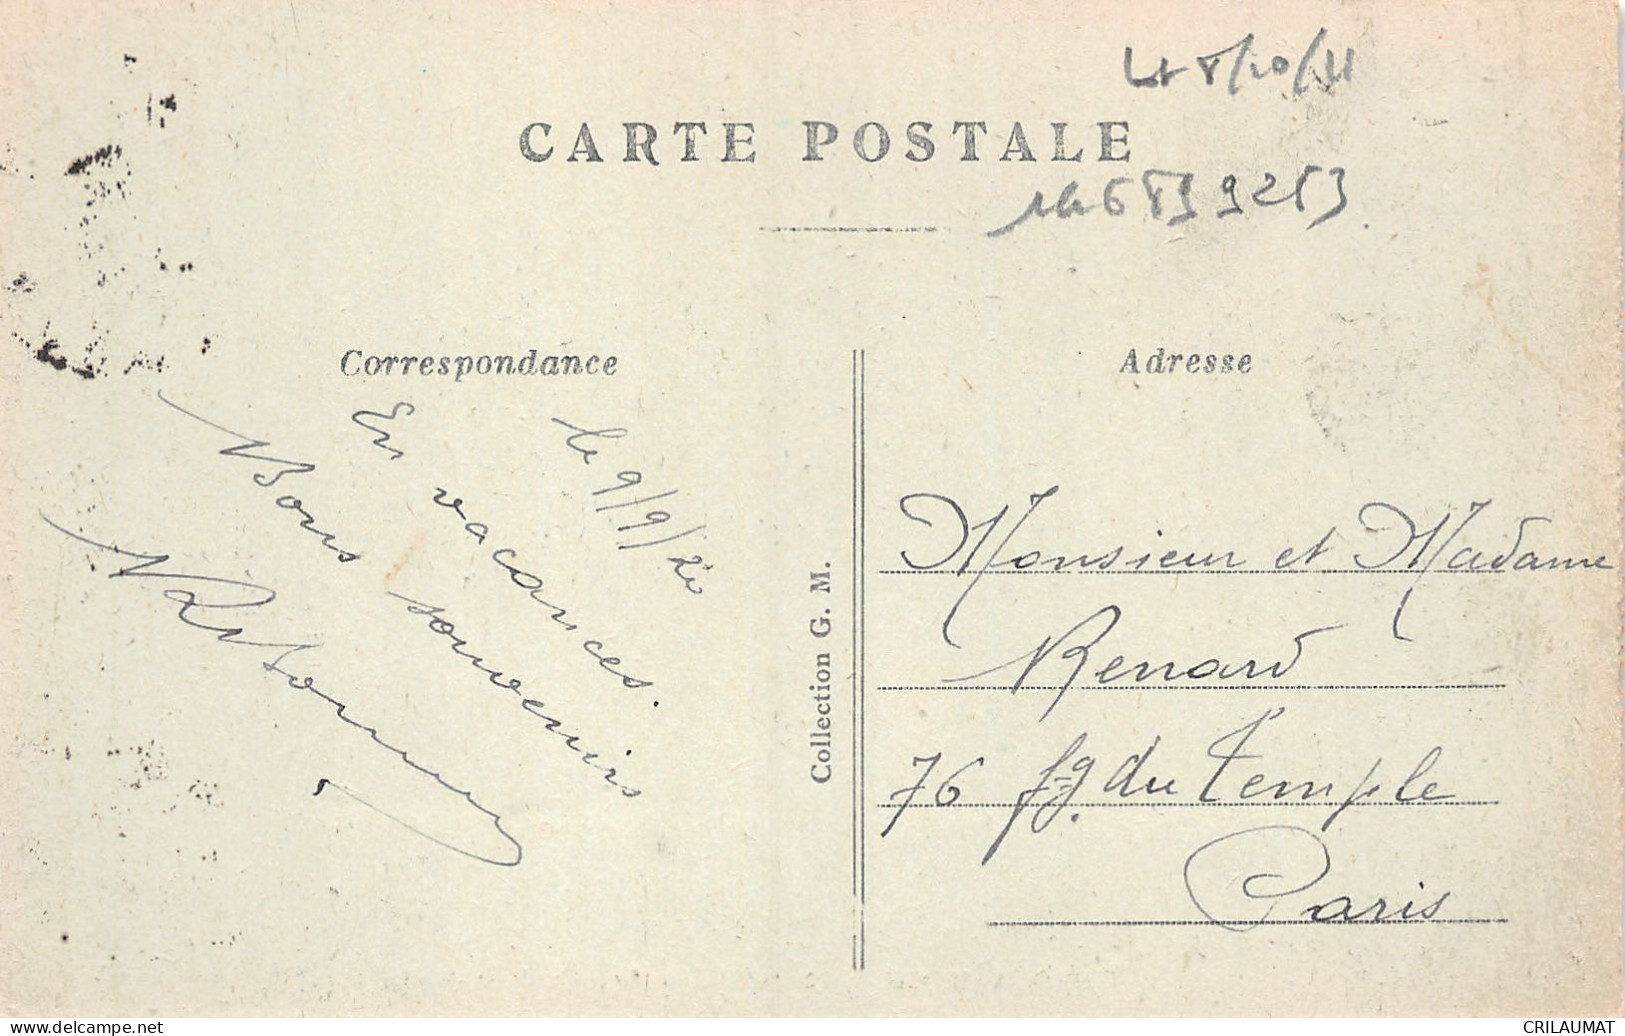 CARTE POSTALE
Correspondance
le 9/9/20
En vacances.
Bons souvenirs
Collection G. M.
Adresse
Monsieur et Madame
Renard
76 fg. du Temple
Paris
www.delcampe.net
CRILAUMAT